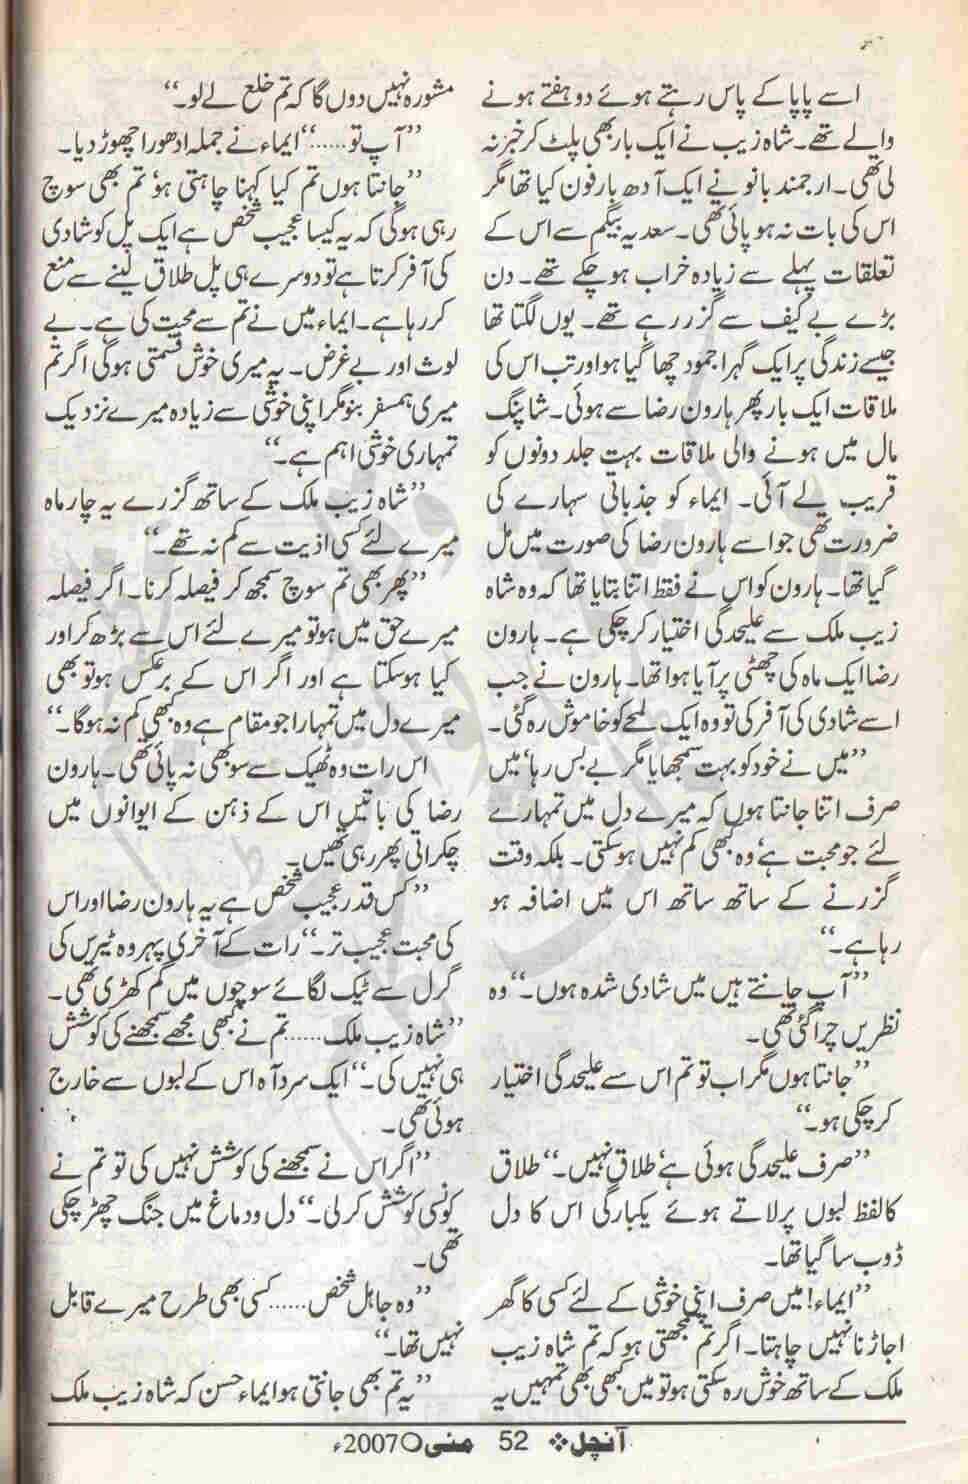 اسے پاپا کے پاس رہتے ہوئے دو ہفتے ہونے
والے تھے۔ شاہ زیب نے ایک بار بھی پلٹ کر خبر نہ
لی تھی۔ ارجمند بانو نے ایک آدھ بار فون کیا تھا مگر
اس کی بات نہ ہو پائی تھی۔ سعدیہ بیگم سے اس کے
تعلقات پہلے سے زیادہ خراب ہو چکے تھے۔ دن
بڑے بے کیف سے گزر رہے تھے۔ یوں لگتا تھا
جیسے زندگی پر ایک گہرا جمود چھا گیا ہو اور تب اس کی
ملاقات ایک بار پھر ہارون رضا سے ہوئی۔ شاپنگ
مال میں ہونے والی ملاقات بہت جلد دونوں کو
قریب لے آئی۔ ایماء کو جذباتی سہارے کی
ضرورت تھی جو اسے ہارون رضا کی صورت میں مل
گیا تھا۔ ہارون کو اس نے فقط اتنا بتایا تھا کہ وہ شاہ
زیب ملک سے علیحدگی اختیار کر چکی ہے۔ ہارون
رضا ایک ماہ کی چھٹی پر آیا ہوا تھا۔ ہارون نے جب
اسے شادی کی آفر کی تو وہ ایک لمحے کو خاموش رہ گئی۔
’’میں نے خود کو بہت سمجھایا مگر بے بس رہا‘ میں
صرف اتنا جانتا ہوں کہ میرے دل میں تمہارے
لئے جو محبت ہے‘ وہ کبھی کم نہیں ہو سکتی۔ بلکہ وقت
گزرنے کے ساتھ ساتھ اس میں اضافہ ہو
رہا ہے۔‘‘
’’آپ جانتے ہیں میں شادی شدہ ہوں۔‘‘ وہ
نظریں چرا گئی تھی۔
’’جانتا ہوں مگر اب تو تم اس سے علیحدگی اختیار
کر چکی ہو۔‘‘
’’صرف علیحدگی ہوئی ہے‘ طلاق نہیں۔‘‘ طلاق
کا لفظ لبوں پر لاتے ہوئے یکبارگی اس کا دل
ڈوب سا گیا تھا۔
’’ایماء! میں صرف اپنی خوشی کے لئے کسی کا گھر
اجاڑنا نہیں چاہتا۔ اگر تم سمجھتی ہو کہ تم شاہ زیب
ملک کے ساتھ خوش رہ سکتی ہو تو میں کبھی بھی تمہیں یہ
مشورہ نہیں دوں گا کہ تم خلع لے لو۔‘‘
’’آپ تو......‘‘ ایماء نے جملہ ادھورا چھوڑ دیا۔
’’جانتا ہوں تم کیا کہنا چاہتی ہو‘ تم بھی سوچ
رہی ہوگی کہ یہ کیسا عجیب شخص ہے ایک پل کو شادی
کی آفر کرتا ہے تو دوسرے ہی پل طلاق لینے سے منع
کر رہا ہے۔ ایماء میں نے تم سے محبت کی ہے۔ بے
لوث اور بے غرض۔ یہ میری خوش قسمتی ہوگی اگر تم
میری ہمسفر بنو مگر اپنی خوشی سے زیادہ میرے نزدیک
تمہاری خوشی اہم ہے۔‘‘
’’شاہ زیب ملک کے ساتھ گزرے یہ چار ماہ
میرے لئے کسی اذیت سے کم نہ تھے۔‘‘
’’پھر بھی تم سوچ سمجھ کر فیصلہ کرنا۔ اگر فیصلہ
میرے حق میں ہو تو میرے لئے اس سے بڑھ کر اور
کیا ہو سکتا ہے اور اگر اس کے برعکس ہو تو بھی
میرے دل میں تمہارا جو مقام ہے وہ کبھی کم نہ ہوگا۔‘‘
اس رات وہ ٹھیک سے سو بھی نہ پائی تھی۔ ہارون
رضا کی باتیں اس کے ذہن کے ایوانوں میں
چکراتی پھر رہی تھیں۔
’’کس قدر عجیب شخص ہے یہ ہارون رضا اور اس
کی محبت عجیب تر۔‘‘ رات کے آخری پہر وہ ٹیرس کی
گرل سے ٹیک لگائے سوچوں میں گم کھڑی تھی۔
’’شاہ زیب ملک...... تم نے کبھی مجھے سمجھنے کی کوشش
ہی نہیں کی۔‘‘ ایک سرد آہ اس کے لبوں سے خارج
ہوئی تھی۔
’’اگر اس نے سمجھنے کی کوشش نہیں کی تو تم نے
کونسی کوشش کر لی۔‘‘ دل و دماغ میں جنگ چھڑ چکی
تھی۔
’’وہ جاہل شخص...... کسی بھی طرح میرے قابل
نہیں تھا۔‘‘
’’یہ تم بھی جانتی ہو ایماء حسن کہ شاہ زیب ملک
آنچل ❖ 52 مئی ○ 2007ء